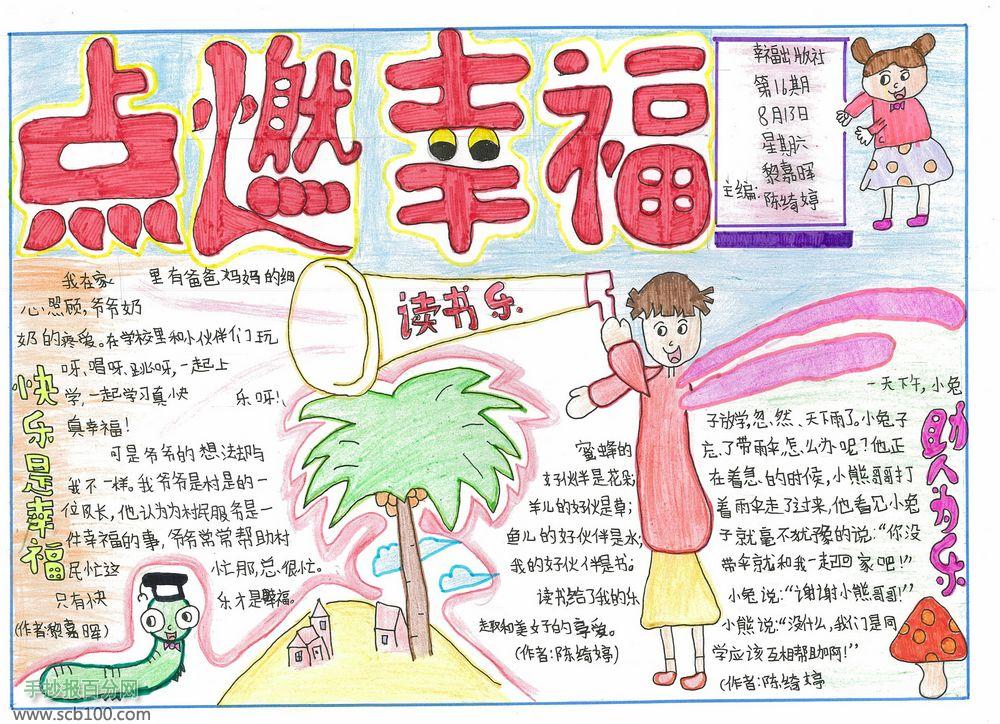 点燃幸福
幸福出版社
第16期
8月13日
星期六
主编:
黎嘉晖
陈绮婷
快乐是幸福
我在家里有爸爸妈妈的细
心照顾,爷爷奶
奶的疼爱。在学校里和小伙伴们玩
呀、唱呀、跳呀,一起上
学,一起学习真快乐呀!,
真幸福!
可是爷爷的想法却与
我不一样。我爷爷是村是的一
位队长,他认为为村民服务是一
件幸福的事,爷爷常常帮助村
民忙这忙那,总很忙。
只有快乐才是幸福。
(作者黎嘉晖)
读书乐
蜜蜂的
好伙伴是花朵;
羊儿的好伙是草;
鱼儿的好伙伴是水;
我的好伙伴是书;
读书给了我的乐
趣和美好的享爱。
(作者:陈绮婷)
助人为乐
一天下午,小兔
子放学,忽、然、天下雨了,小兔子
忘了带雨伞,怎么办吧?他正
在着急的时侯,小熊哥哥打
着雨伞走了过来,他看见小兔
子就毫不犹豫的说:“你没
带伞就和我一起回家吧!”
小兔说:“谢谢小熊哥哥!”
小熊说:“没什么,我们是同
学应该互相帮助啊!”
(作者:陈绮婷
手抄报百分网
www.scb100.com